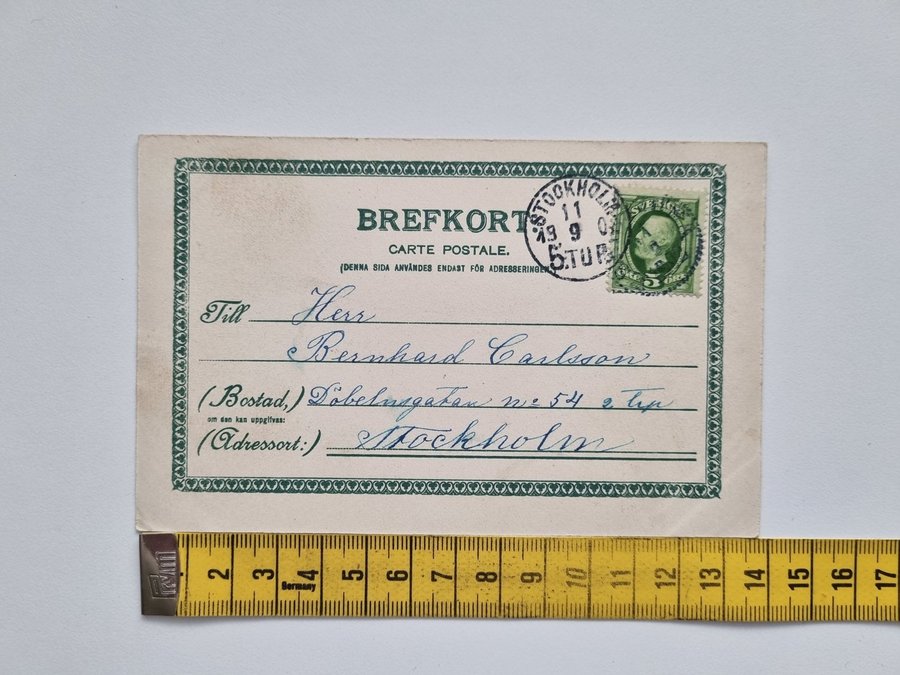 BREFKORT
CARTE POSTALE.
(DENNA SIDA ANVÄNDES ENDAST FÖR ADRESSERINGEN
STOCKHOLM
11
19 9 0
5.TUR
SVERIGE
5
Till Herr
Bernhard Carlsson
(Bostad,) Döbelnsgatan no 54 2 trp
om den kan uppgifvas:
(Adressort:) Stockholm
Germany
2 3 4 5 6 7 8 9 10 11 12 13 14 15 16 17